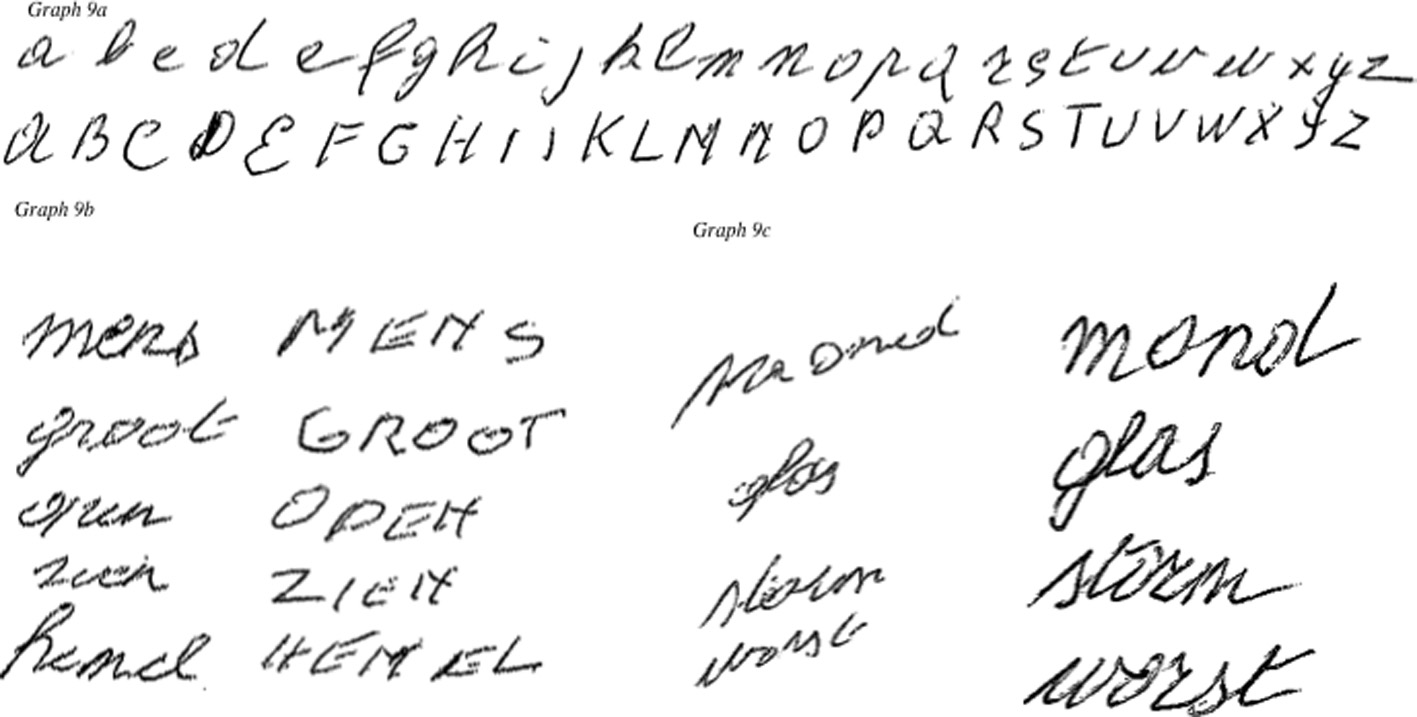 Graph 9a
a b c d e f g h i j k l m n o p q r s t u v w x y z
A B C D E F G H I J K L M N O P Q R S T U V W X Y Z
Graph 9b
mens MENS
groot GROOT
open OPEN
zien ZIEN
hemel HEMEL
Graph 9c
mond
glas glas
storm storm
worst worst